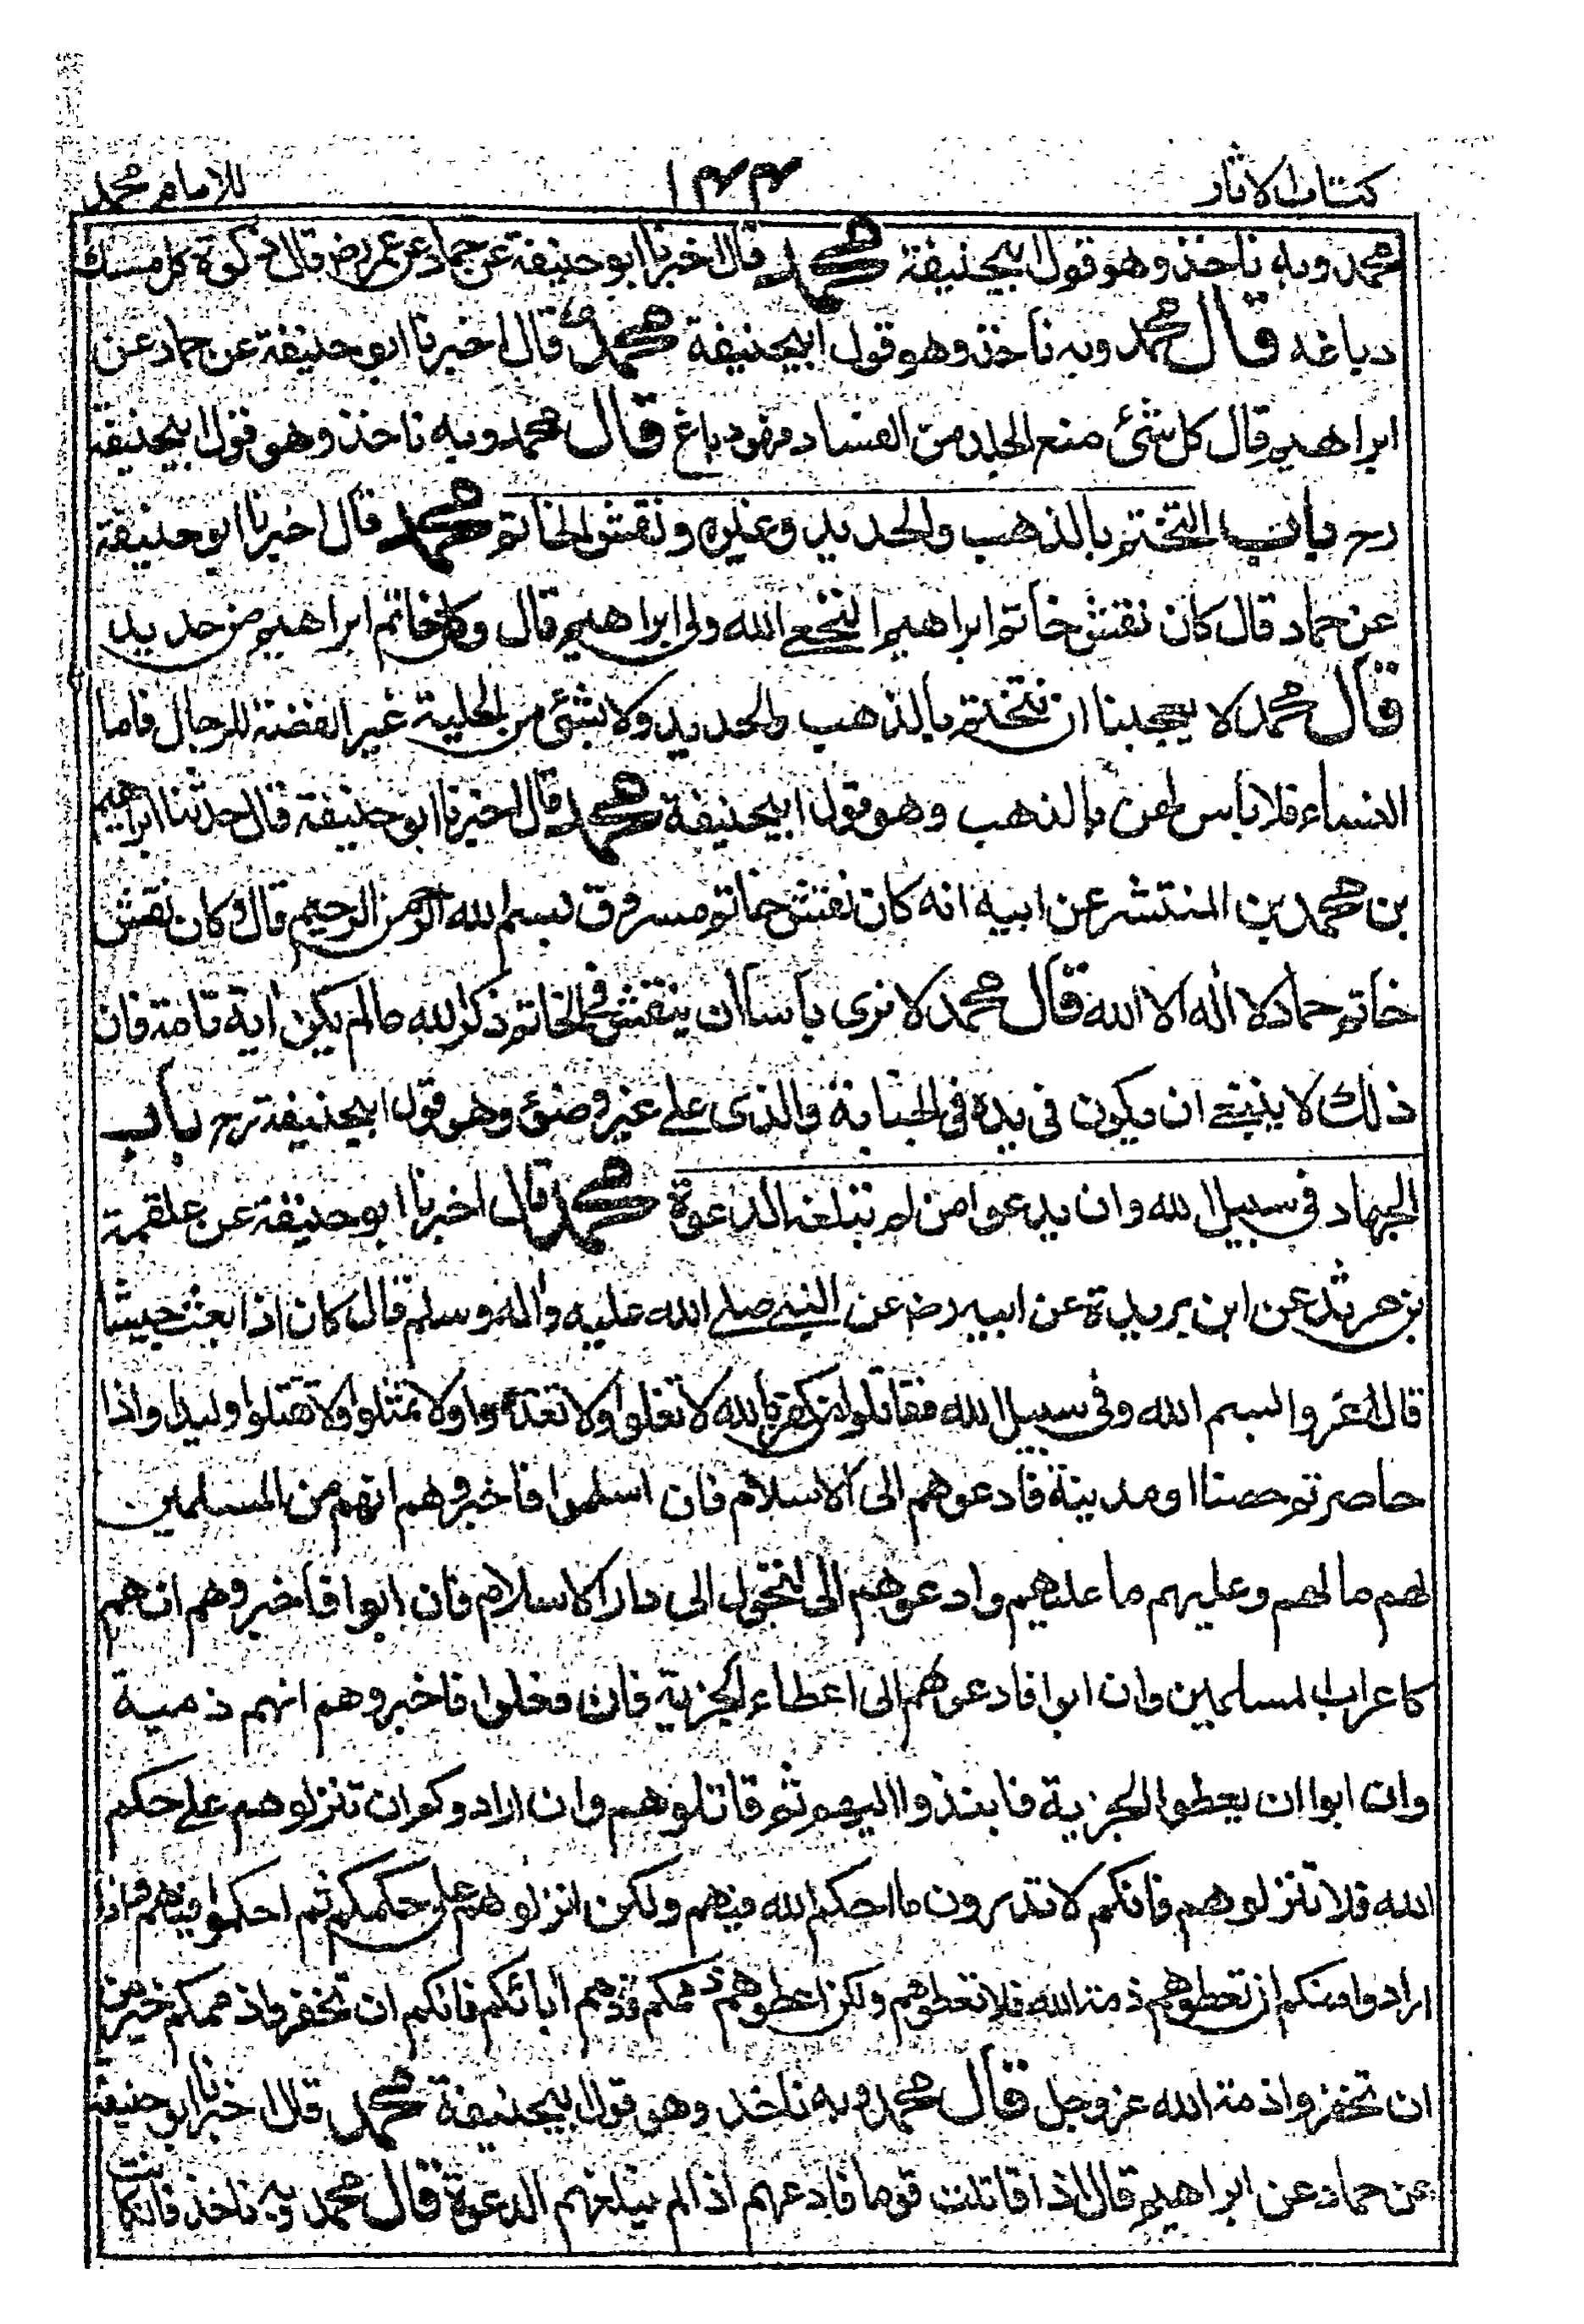 كتاب الاثار ١٤٤ للامام محمد
محمد وبه ناخذ وهو قول ابيحنيفة محمد قال اخبرنا ابو حنيفة عن حماد عن عمر رض قال ذكوة كل مسك
دباغه قال محمد وبه ناخذ وهو قول ابيحنيفة محمد قال اخبرنا ابو حنيفة عن حماد عن
ابراهيم قال كل شئ منع الجلد من الفساد فهو دباغ قال محمد وبه ناخذ وهو قول ابيحنيفة
رح باب التختم بالذهب والحديد وغيره ونقش الخاتم محمد قال اخبرنا ابو حنيفة
عن حماد قال كان نقش خاتم ابراهيم النخعي الله ولى ابراهيم قال وكان خاتم ابراهيم من حديد
قال محمد لا يعجبنا ان نتختم بالذهب والحديد ولا بشئ من الحلية غير الفضة للرجال فاما
النساء فلا باس لهن بالذهب وهو قول ابيحنيفة محمد قال اخبرنا ابو حنيفة قال حدثنا ابراهيم
بن محمد بن المنتشر عن ابيه انه كان نقش خاتم مسروق بسم الله الرحمن الرحيم قال وكان نقش
خاتم حماد لا اله الا الله قال محمد لا نرى باسا ان ينقش فى الخاتم ذكر الله مالم يكن اية تامة فان
ذلك لا ينبغي ان يكون فى يده فى الجنابة والذى على غير وضوء وهو قول ابيحنيفة رح باب
الجهاد فى سبيل الله وان يدعوا من لم تبلغه الدعوة محمد قال اخبرنا ابو حنيفة عن علقمة
بن مرثد عن ابن بريدة عن ابيه رض عن النبي صلى الله عليه واله وسلم قال كان اذا بعث جيشا
قال اغزوا بسم الله وفى سبيل الله فقاتلوا من كفر بالله لا تغلوا ولا تغدروا ولا تمثلوا ولا تقتلوا وليدا واذا
حاصرتم حصنا او مدينة فادعوهم الى الاسلام فان اسلموا فاخبروهم انهم من المسلمين
لهم ما لهم وعليهم ما عليهم وادعوهم الى التحول الى دار الاسلام فان ابوا فاخبروهم انهم
كاعراب المسلمين وان ابوا فادعوهم الى اعطاء الجزية فان فعلوا فاخبروهم انهم ذمية
وان ابوا ان يعطوا الجزية فانبذوا اليهم ثم قاتلوهم وان ارادوكم ان تنزلوهم على حكم
الله فلا تنزلوهم فانكم لا تدرون ما حكم الله فيهم ولكن انزلوهم على حكمكم ثم احكموا فيهم فاذا
ارادوا منكم ان تعطوهم ذمة الله فلا تعطوهم ولكن اعطوهم ذممكم وذمم ابائكم فانكم ان تخفروا ذممكم خير من
ان تخفروا ذمة الله عز وجل قال محمد وبه ناخذ وهو قول ابيحنيفة محمد قال اخبرنا ابو حنيفة
عن حماد عن ابراهيم قال اذا قاتلت قوما فادعهم اذا لم تبلغهم الدعوة قال محمد وبه ناخذ فان كانت